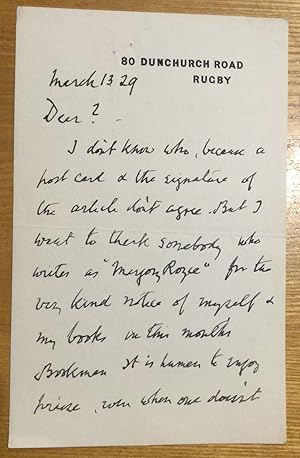 80 DUNCHURCH ROAD
RUGBY
March 13 29
Dear ? -
I don't know who, because a
post card & the signature of
the article don't agree. But I
want to thank somebody who
writes as "Marjory Royce" for the
very kind notice of myself &
my books in this month's
Bookman. It is human to enjoy
praise, even when one doesn't